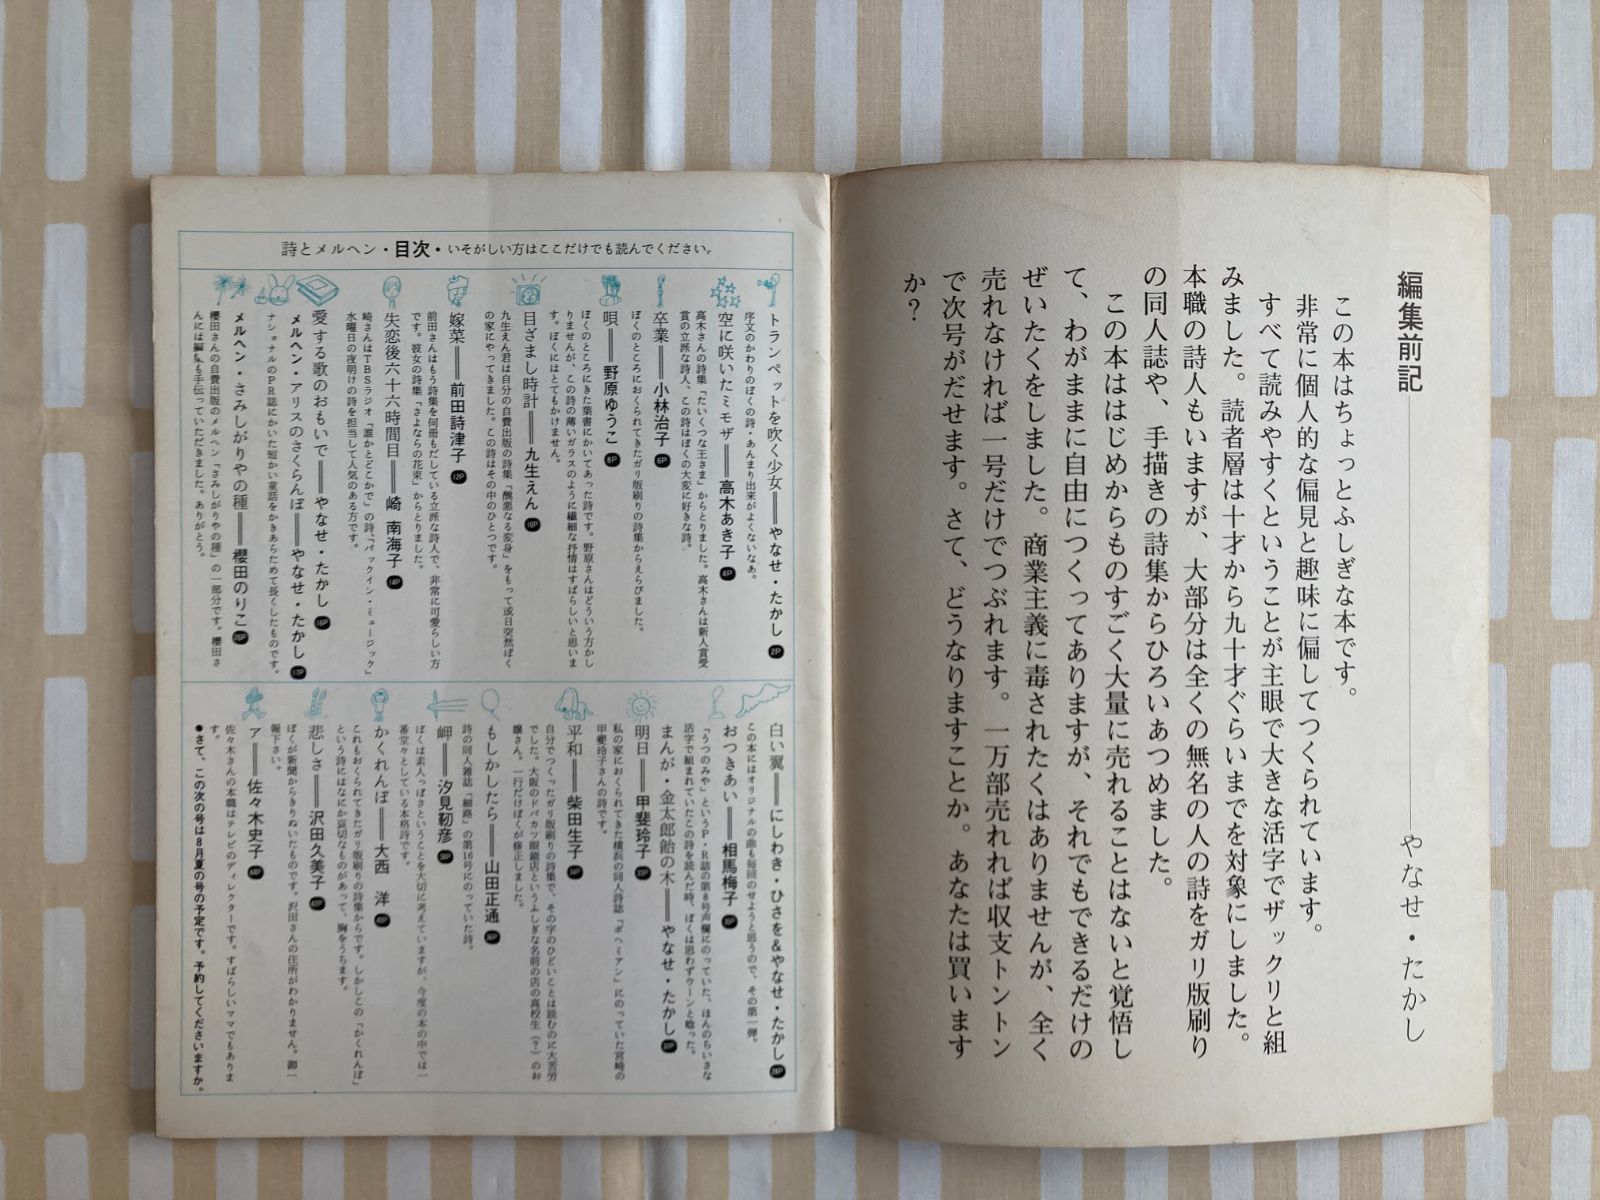 編集前記――やなせ・たかし
この本はちょっとふしぎな本です。
非常に個人的な偏見と趣味に偏してつくられています。
すべて読みやすくということが主眼で大きな活字でザックリと組
みました。読者層は十才から九十才ぐらいまでを対象にしました。
本職の詩人もいますが、大部分は全くの無名の人の詩をガリ版刷り
の同人誌や、手描きの詩集からひろいあつめました。
この本ははじめからものすごく大量に売れることはないと覚悟し
て、わがままに自由につくってありますが、それでもできるだけの
ぜいたくをしました。商業主義に毒されたくはありませんが、全く
売れなければ一号だけでつぶれます。一万部売れれば収支トントン
で次号がだせます。さて、どうなりますことか。あなたは買います
か?
詩とメルヘン・目次・いそがしい方はここだけでも読んでください。
トランペットを吹く少女══やなせ・たかし 2P
序文のかわりのぼくの詩・あんまり出来がよくないなあ。
空に咲いたミモザ══高木あき子 4P
高木さんの詩集「たいくつな王さま」からとりました。高木さんは新人賞受
賞の立派な詩人、この詩はぼくの大変に好きな詩。
卒業══小林治子 6P
ぼくのところにおくられてきたガリ版刷りの詩集からえらびました。
唄══野原ゆうこ 8P
ぼくのところにきた葉書にかいてあった詩です。野原さんはどういう方かし
りませんが、この詩の薄いガラスのように繊細な抒情はすばらしいと思いま
す。ぼくにはとてもかけません。
目ざまし時計══九生えん 10P
九生えん君は自分の自費出版の詩集「醜悪なる変身」をもって或日突然ぼく
の家にやってきました。この詩はその中のひとつです。
嫁菜══前田詩津子 12P
前田さんはもう詩集を何冊もだしている立派な詩人で、非常に可愛らしい方
です。彼女の詩集「さよならの花束」からとりました。
失恋後六十六時間目══崎 南海子 14P
崎さんはTBSラジオ「誰かとどこかで」の詩、「パックイン・ミュージック」
水曜日の夜明けの詩を担当して人気のある方です。
愛する歌のおもいで══やなせ・たかし 16P
メルヘン・アリスのさくらんぼ══やなせ・たかし 17P
ナショナルのPR誌にかいた短かい童話をかきあらためて長くしたものです。
メルヘン・さみしがりやの種══櫻田のりこ
櫻田さんの自費出版のメルヘン「さみしがりやの種」の一部分です。櫻田さ
んには編集も手伝っていただきました。ありがとう。
白い翼══にしわき・ひさを&やなせ・たかし
この本にはオリジナルの曲も毎回のせようと思うので、その第一弾。
おつきあい══相馬梅子 30P
「うつのみや」というP・R誌の第8号声欄にのっていた、ほんのちいさな
活字で組まれていたこの詩を読んだ時、ぼくは思わずウーンと唸った。
まんが・金太郎飴の木══やなせ・たかし
明日══甲斐玲子
私の家におくられてきた横浜の同人詩誌「ボヘミアン」にのっていた宮崎の
甲斐玲子さんの詩です。
平和══柴田生子
自分でつくったガリ版刷りの詩集で、その字のひどいことは読むのに大苦労
でした。大阪のドバカッ眼鏡店というふしぎな名前の店の高校生(?)のお
嬢さん。一行だけぼくが修正しました。
もしかしたら══山田正通
詩の同人雑誌「細路」の第16号にのっていた詩。
岬══汐見靭彦
ぼくは素人っぽさということを大切に考えていますが、今度の本の中では一
番堂々としている本格詩です。
かくれんぼ══大西 洋
これもおくられてきたガリ版刷りの詩集からです。しかしこの「かくれんぼ」
という詩にはなにか哀切なものがあって、胸をうちます。
悲しさ══沢田久美子
ぼくが新聞からきりぬいたものです。沢田さんの住所がわかりません。御一
報下さい。
ア══佐々木史子
佐々木さんの本職はテレビのディレクターです。すばらしいママでもありま
す。
●さて、この次の号は8月夏の号の予定です。予約してくださいますか。